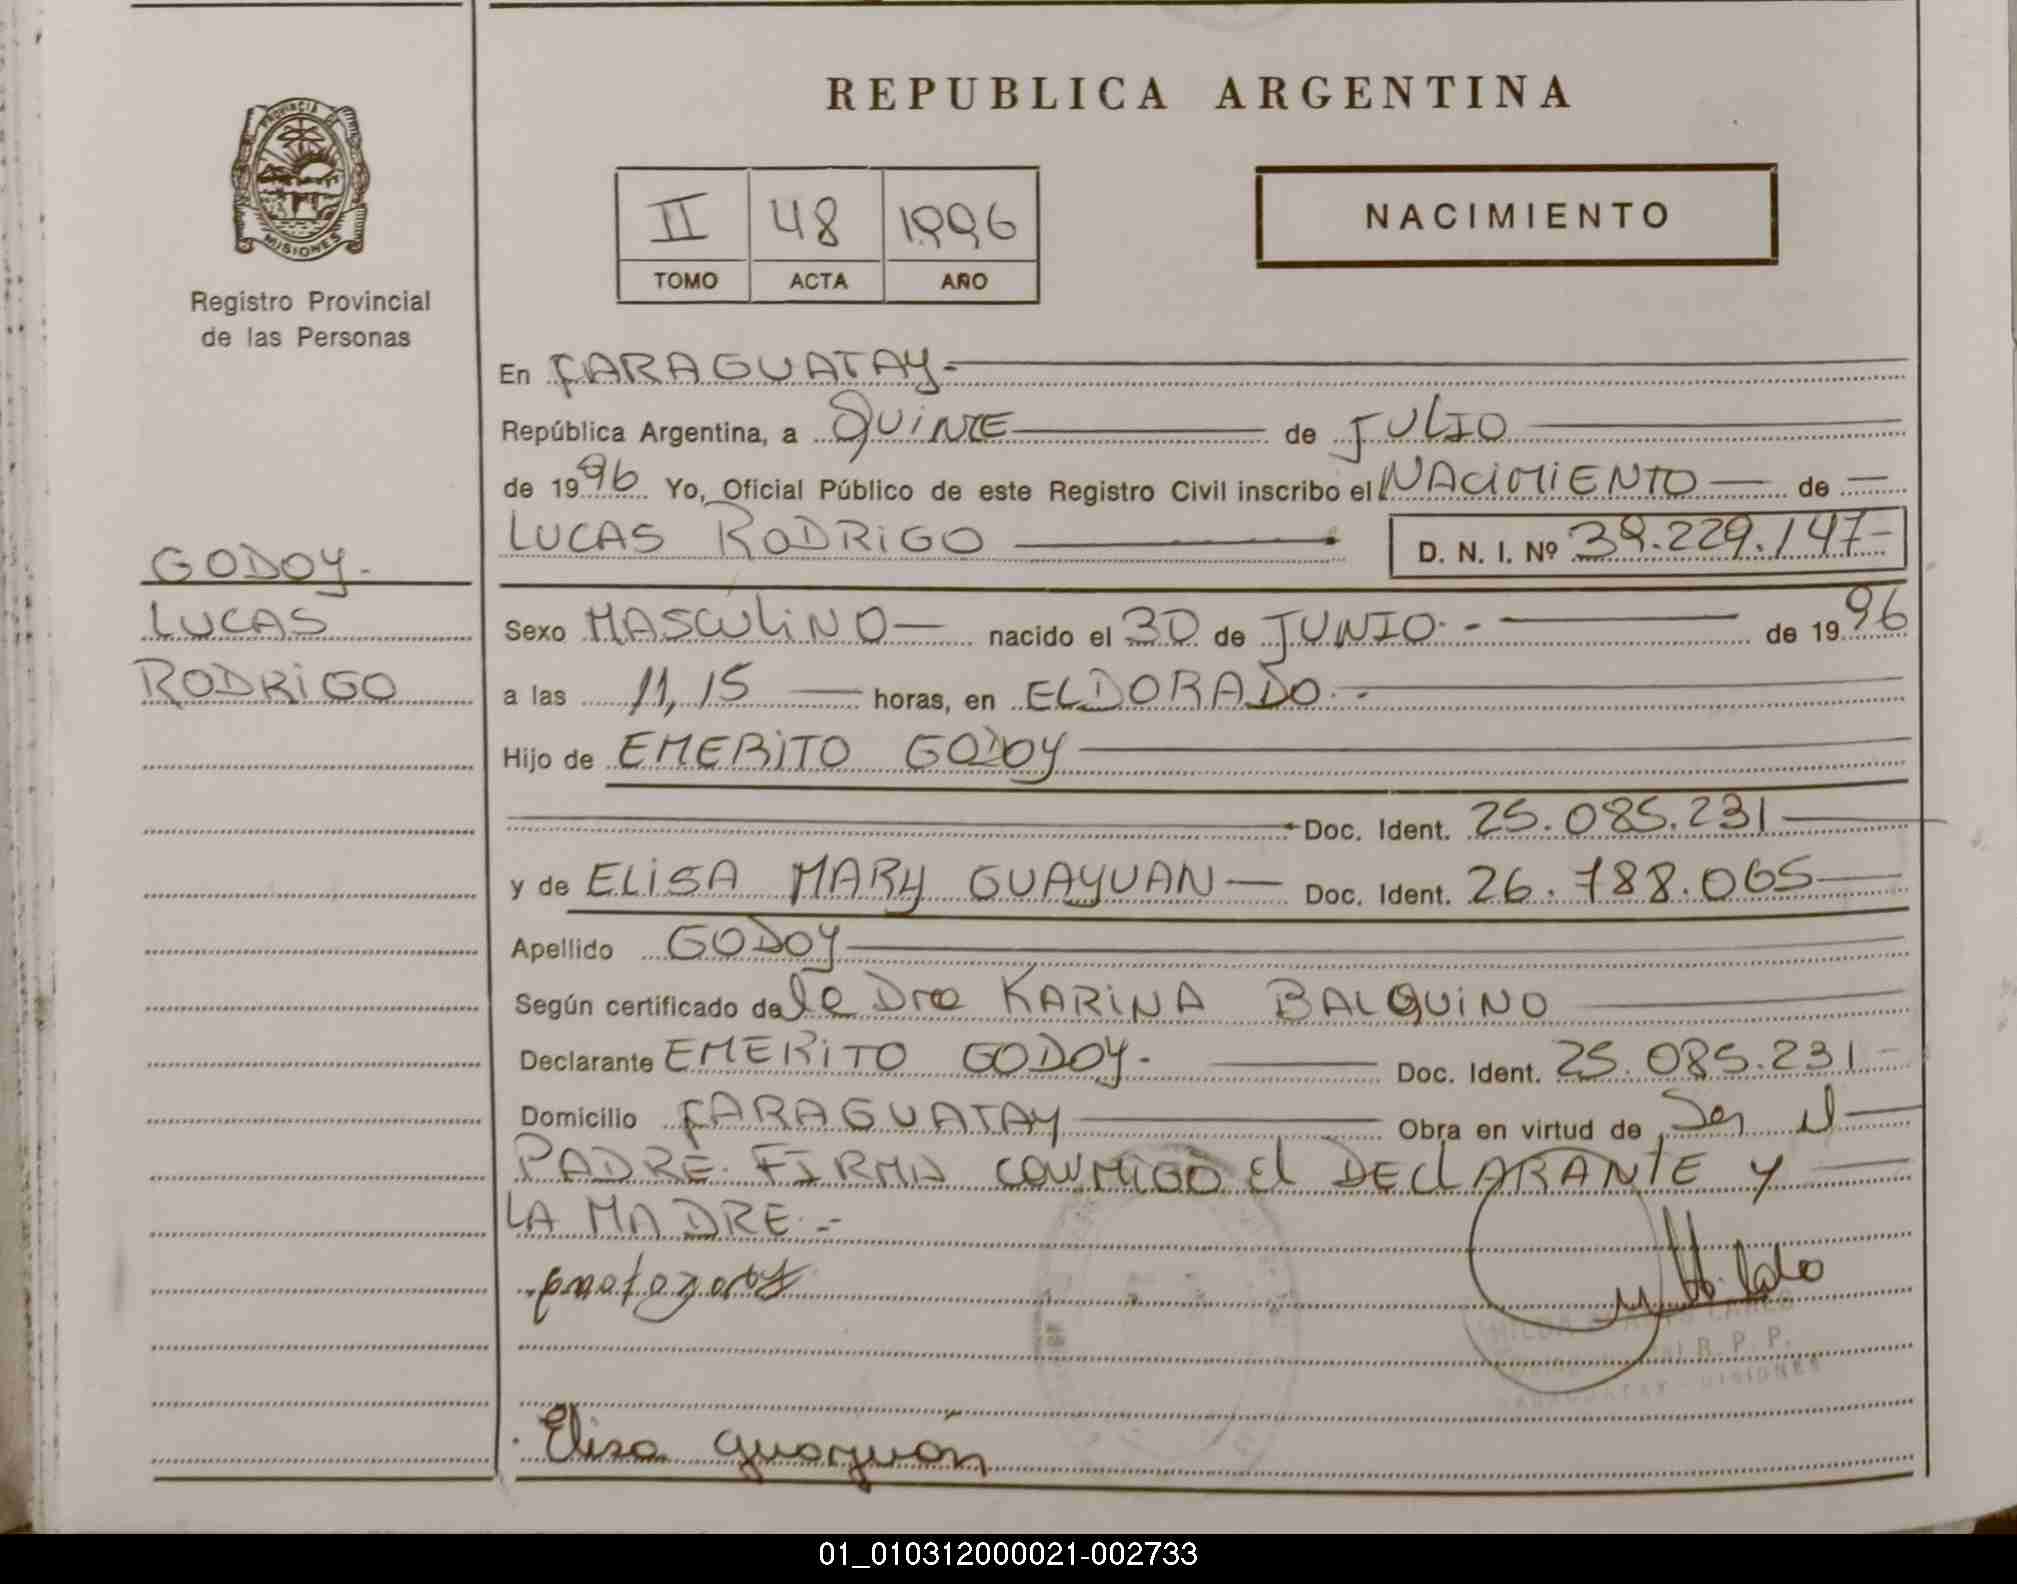 REPUBLICA ARGENTINA
PROVINCIA DE
MISIONES
Registro Provincial
de las Personas
II 48 1996
TOMO ACTA AÑO
NACIMIENTO
GODOY.-
LUCAS
RODRIGO
En CARAGUATAY.-
República Argentina, a QUINCE de JULIO
de 1996 Yo, Oficial Público de este Registro Civil inscribo el NACIMIENTO de
LUCAS RODRIGO D. N. I. Nº 39.229.147-
Sexo MASCULINO nacido el 30 de JUNIO.- de 1996
a las 11,15 horas, en ELDORADO.-
Hijo de EMERITO GODOY
Doc. Ident. 25.085.231
y de ELISA MARY GUAYUAN Doc. Ident. 26.788.065
Apellido GODOY
Según certificado de la Dra KARINA BALQUINO
Declarante EMERITO GODOY.- Doc. Ident. 25.085.231
Domicilio CARAGUATAY Obra en virtud de Ser el
PADRE. FIRMA CONMIGO El DECLARANTE y
LA MADRE.-
R. P. P.
MISIONES
Elisa guayuan
01_010312000021-002733